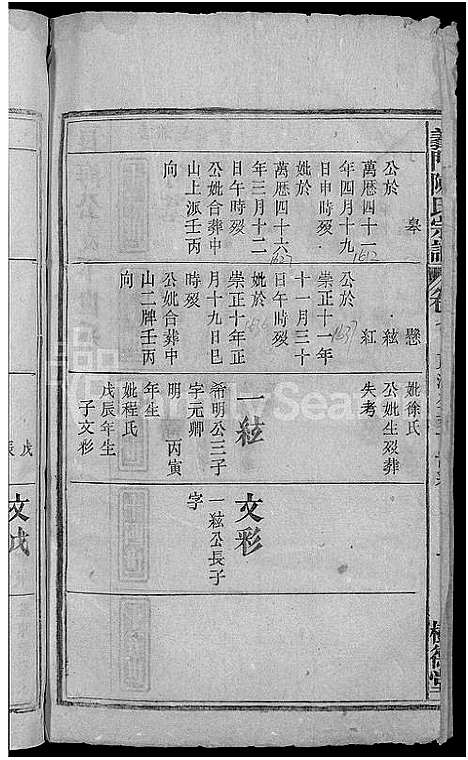 義門陳氏宗譜
皋
公於
萬厯四十一
1612
年四月十九
日申時歿
妣於
萬厯四十六
1627
年三月十二
日午時歿
公妣合葬中
山上派壬丙
向
懸
絃
紅
公於
崇正十一年
1637
十一月三十
日午時歿
妣於
崇正十年正
月十九日巳
時歿
公妣合葬中
山二牌壬丙
向
妣徐氏
公妣生歿葬
失考
一絃
希明公三子
字元卿
明 丙寅
年生
妣程氏
戊辰年生
子文彩
文彩
一絃公長子
字
文戉
戊
辰